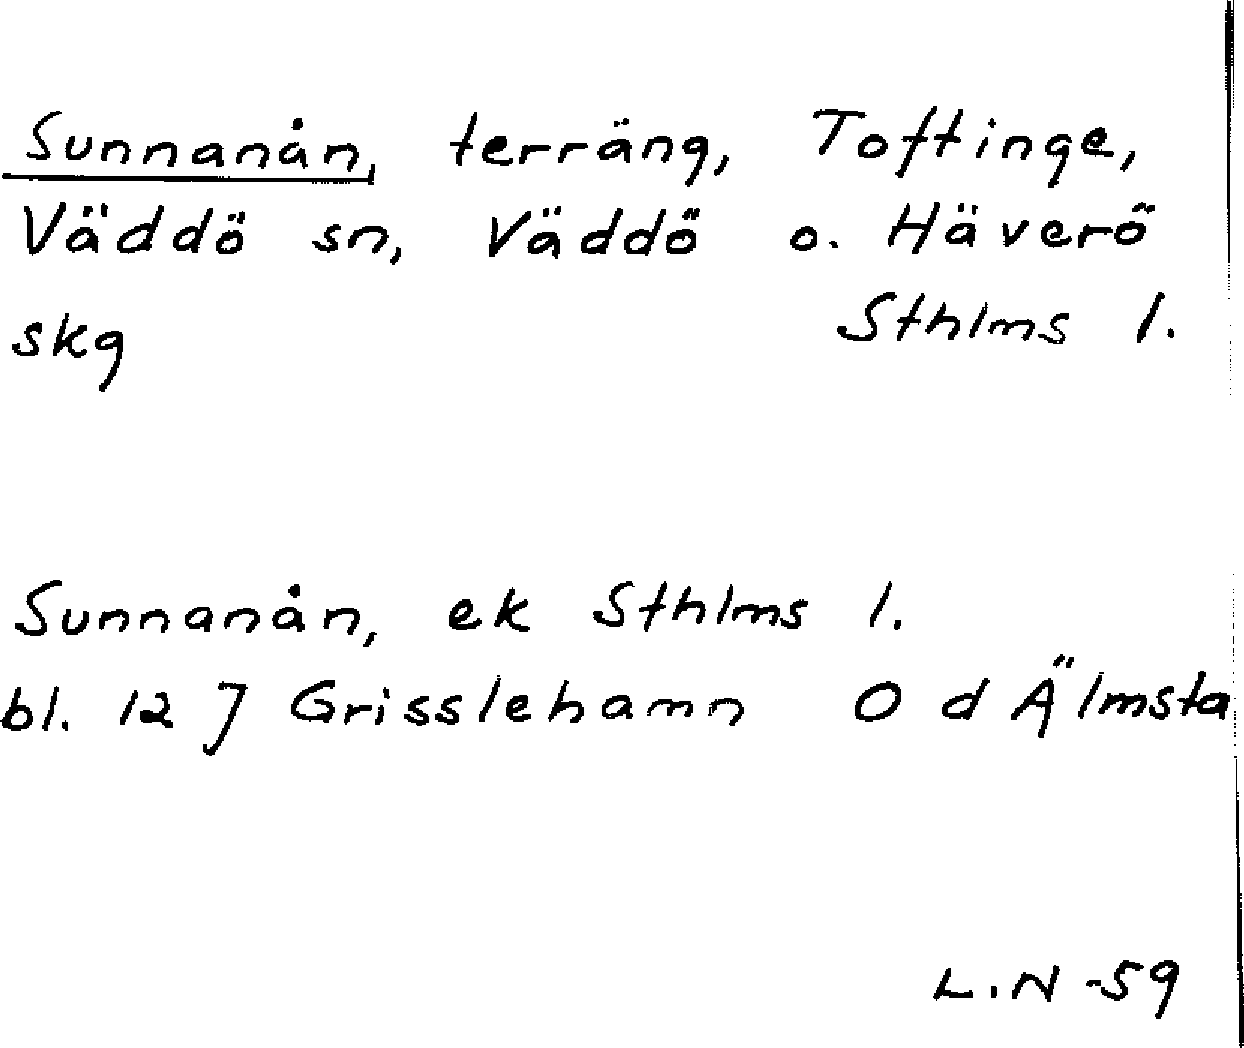 Sunnanån, terräng, Toftinge,
Väddö sn, Väddö o. Häverö
skg Sthlms l.
Sunnanån, ek Sthlms l.
bl. 12 J Grisslehamn O d Älmsta
L.N -59